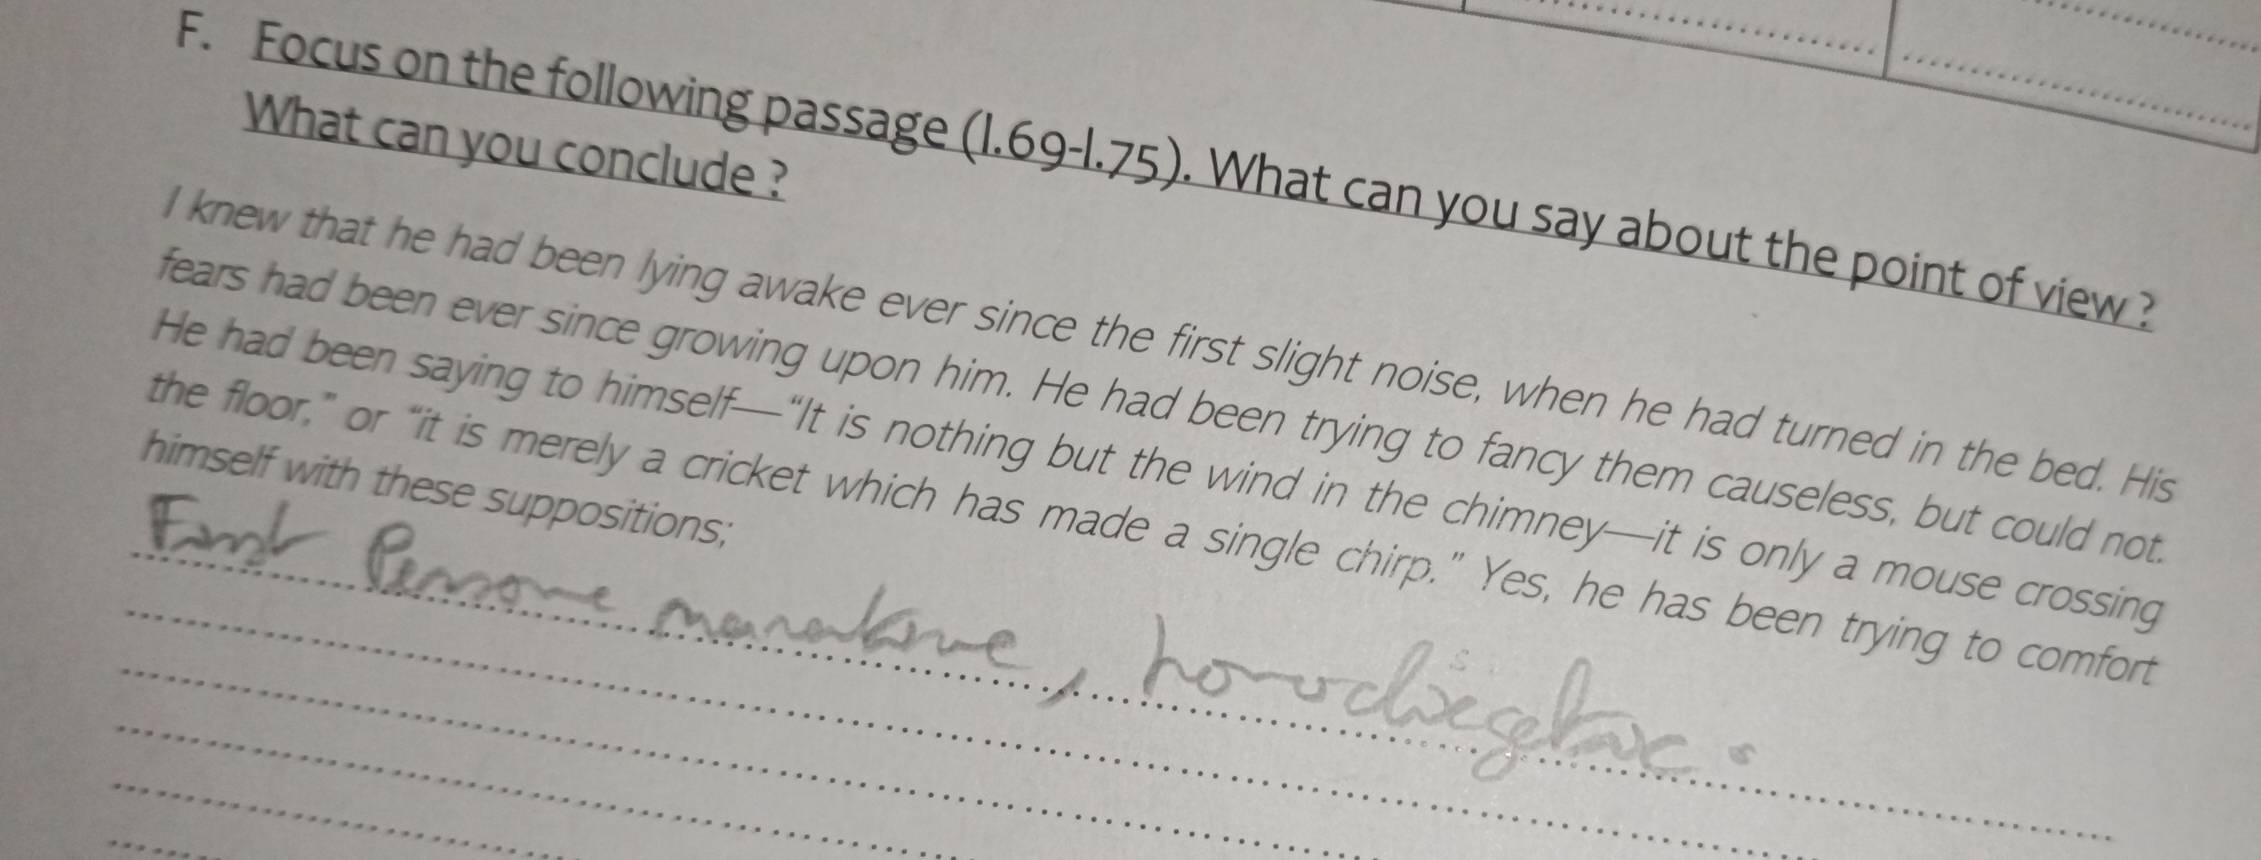 F. Focus on the following passage (l.69-l.75). What can you say about the point of view ?
What can you conclude ?
I knew that he had been lying awake ever since the first slight noise, when he had turned in the bed. His
fears had been ever since growing upon him. He had been trying to fancy them causeless, but could not.
He had been saying to himself—“It is nothing but the wind in the chimney—it is only a mouse crossing
the floor,” or “it is merely a cricket which has made a single chirp.” Yes, he has been trying to comfort
himself with these suppositions;
homodiegetic.